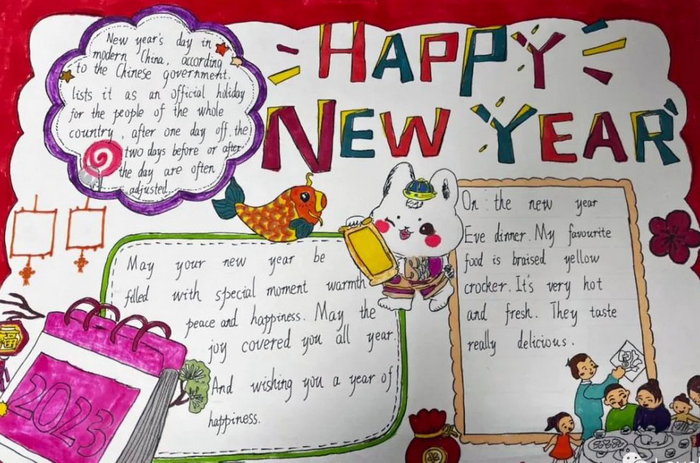 HAPPY
NEW YEAR
New year's day in
modern China, according
to the Chinese government.
lists it as an official holiday
for the people of the whole
country, after one day off, the
two days before or after
the day are often
adjusted.
May your new year be
filled with special moment warmth
peace and happiness. May the
joy covered you all year.
And wishing you a year of
happiness.
On : the new year
Eve dinner. My favourite
food is braised yellow
crocker. It's very hot
and fresh. They taste
really delicious.
2023